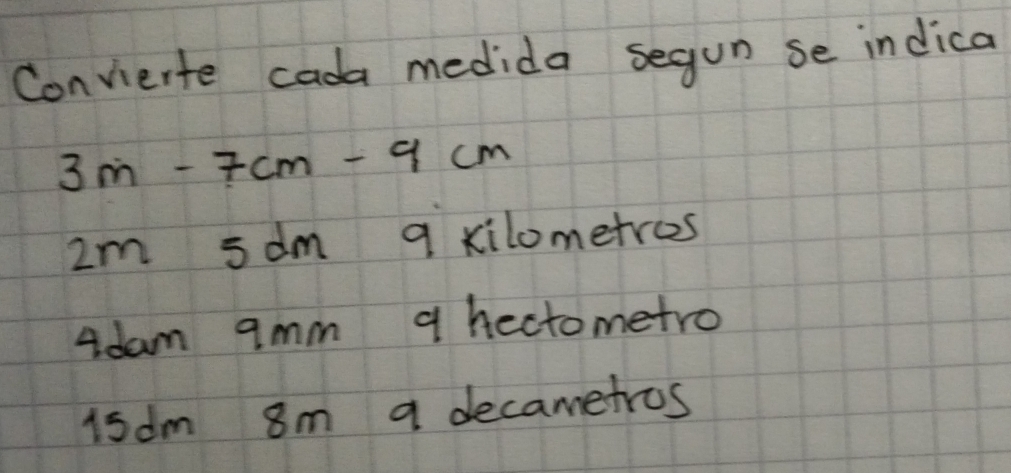 Convierte cada medida segun se indica
3m - 7cm - a cm
2m 5dm a kilometros
4dam 9mm a hectometro
15dm 8m a decametros